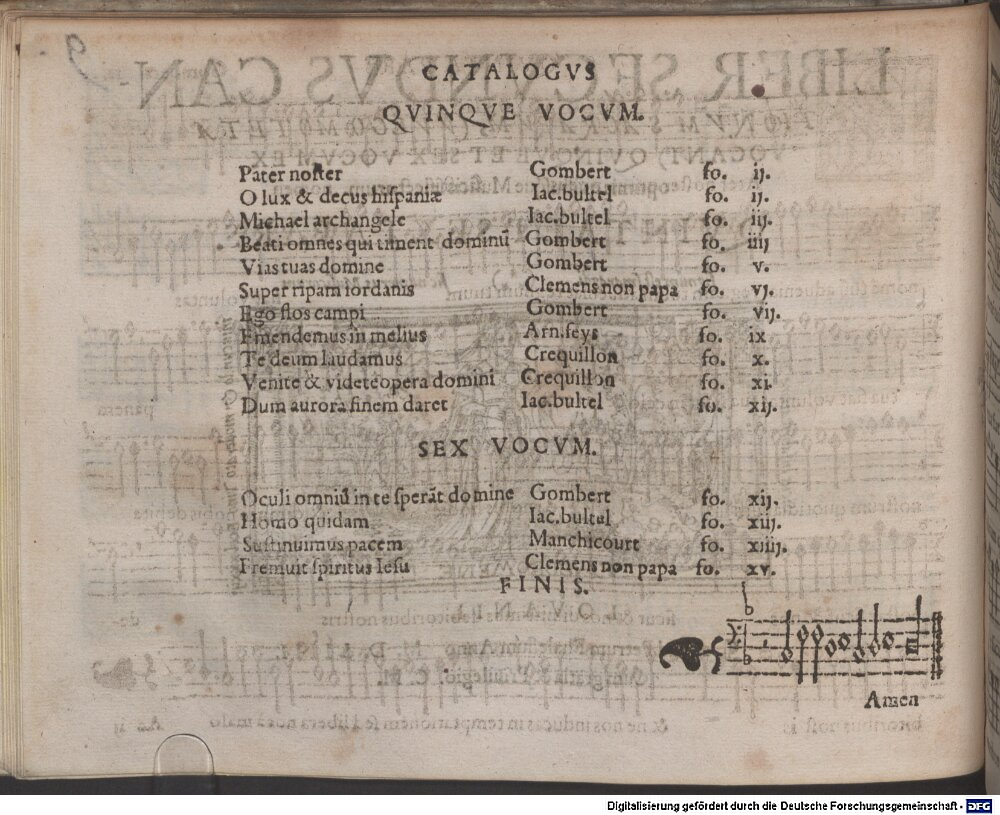 CATALOGVS
QVINQVE VOCVM.
Pater noſter Gombert fo. ij.
O lux & decus hiſpaniæ Iac.bultel fo. ij.
Michael archangele Iac.bultel fo. iij.
Beati omnes qui timent dominũ Gombert fo. iiij
Vias tuas domine Gombert fo. v.
Super ripam iordanis Clemens non papa fo. vj.
Ego flos campi Gombert fo. vij.
Emendemus in melius Arn.feys fo. ix
Te deum laudamus Crequillon fo. x.
Venite & videte opera domini Crequillon fo. xi.
Dum aurora finem daret Iac.bultel fo. xij.
SEX VOCVM.
Oculi omniũ in te ſperãt domine Gombert fo. xij.
Homo quidam Iac.bultel fo. xiij.
Suſtinuimus pacem Manchicourt fo. xiiij.
Fremuit ſpiritus Ieſu Clemens non papa fo. xv.
FINIS.
Amen
Digitalisierung gefördert durch die Deutsche Forschungsgemeinschaft - DFG